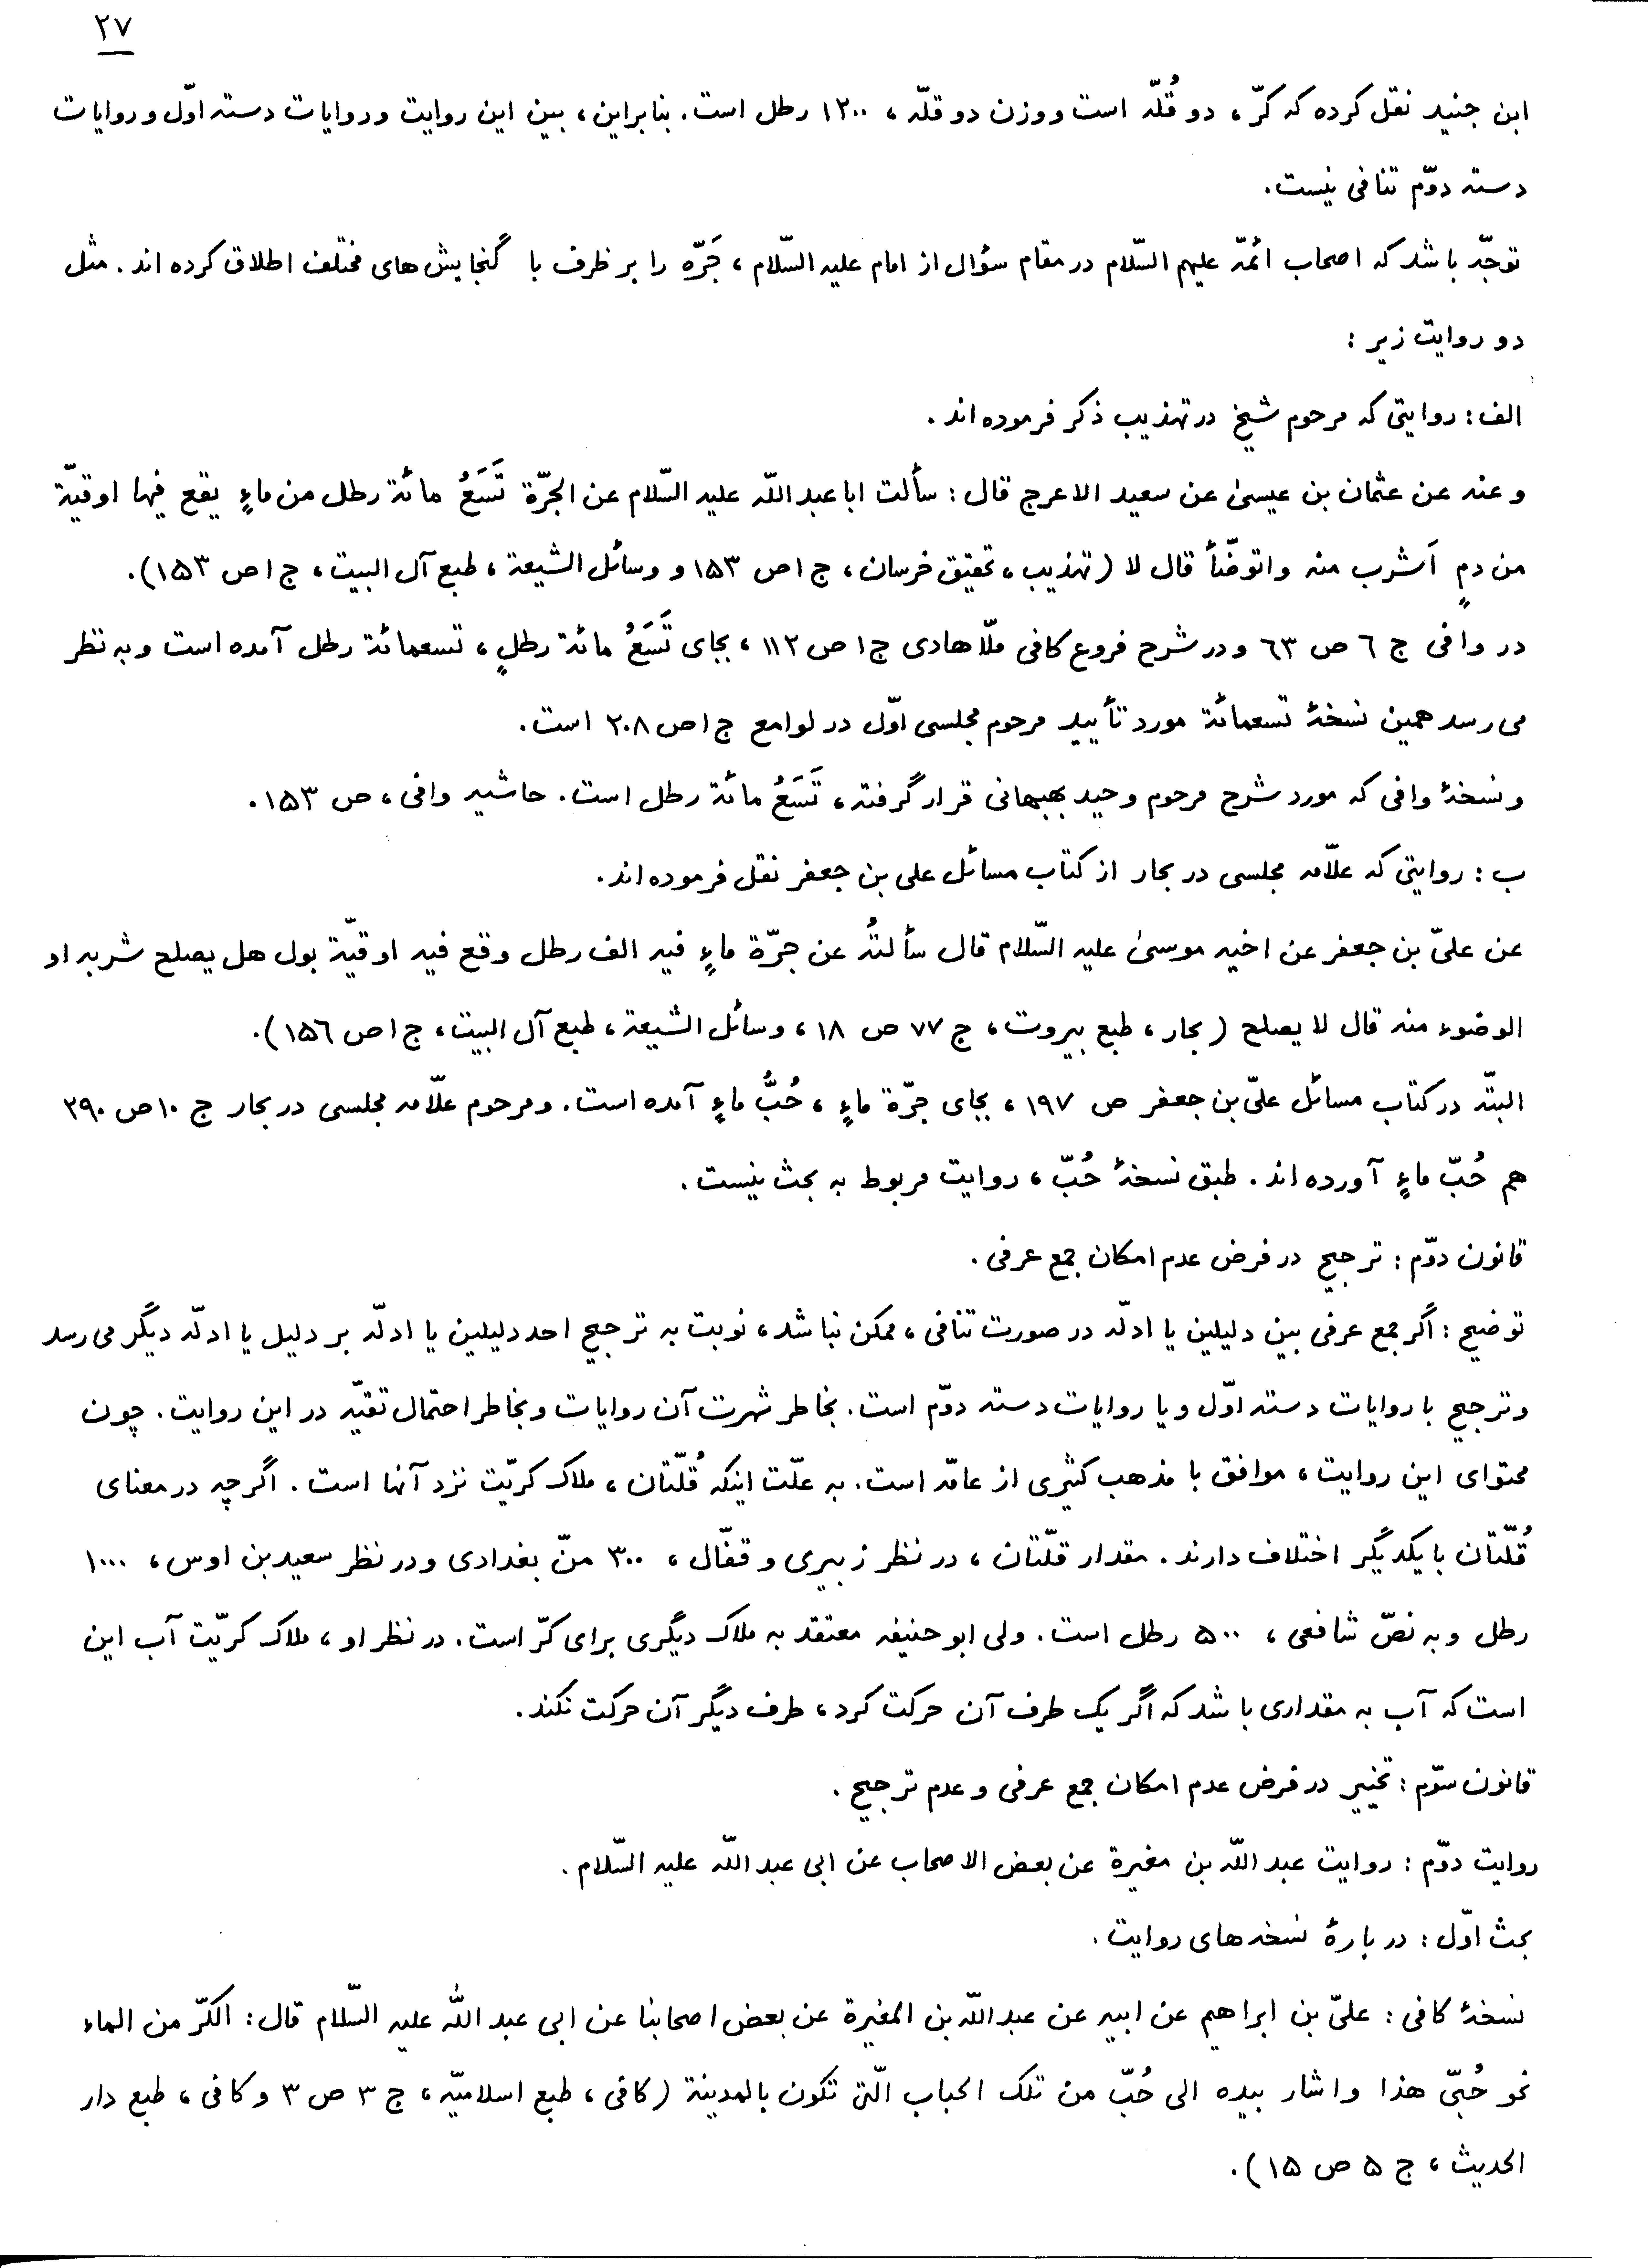 ۲۷
ابن جنید نقل کرده که کرّ، دو قُلّه است و وزن دو قلّه، ۱۲۰۰ رطل است. بنابراین، بین این روایت و روایات دسته اوّل و روایات
دسته دوّم تنافی نیست.
توجّه باشد که اصحاب ائمّه علیهم السّلام در مقام سؤال از امام علیه السّلام، جَرّه را بر ظرف با گنجایش های مختلف اطلاق کرده اند. مثل
دو روایت زیر:
الف: روایتی که مرحوم شیخ در تهذیب ذکر فرموده اند.
و عنه عن عثمان بن عیسیٰ عن سعید الاعرج قال: سألت ابا عبد اللّه علیه السّلام عن الجرّة تَسَعُ مائة رطل من ماءٍ یقع فیها اوقیّة
من دمٍ اَشرب منه و اتوضّأ قال لا (تهذیب، تحقیق خرسان، ج۱ ص ۱۵۳ و وسائل الشیعة، طبع آل البیت، ج۱ ص ۱۵۳).
در وافی ج ٦ ص ٦۳ و در شرح فروع کافی ملّا هادی ج۱ ص ۱۱۲، بجای تَسَعُ مائة رطلٍ، تسعمائة رطل آمده است و به نظر
می رسد همین نسخهٔ تسعمائة مورد تأیید مرحوم مجلسی اوّل در لوامع ج۱ ص ۲۰۸ است.
و نسخهٔ وافی که مورد شرح مرحوم وحید بهبهانی قرار گرفته، تَسَعُ مائة رطل است. حاشیه وافی، ص ۱۵۳.
ب: روایتی که علّامه مجلسی در بحار از کتاب مسائل علی بن جعفر نقل فرموده اند.
عن علیّ بن جعفر عن اخیه موسیٰ علیه السّلام قال سألتُه عن جرّة ماءٍ فیه الف رطل وقع فیه اوقیّة بول هل یصلح شربه او
الوضوء منه قال لا یصلح (بحار، طبع بیروت، ج ۷۷ ص ۱۸، وسائل الشیعة، طبع آل البیت، ج۱ ص ۱۵٦).
البتّه در کتاب مسائل علیّ بن جعفر ص ۱۹۷، بجای جرّة ماءٍ، حُبُّ ماءٍ آمده است. و مرحوم علّامه مجلسی در بحار ج ۱۰ ص ۲۹۰
هم حُبّ ماءٍ آورده اند. طبق نسخهٔ حُبّ، روایت مربوط به بحث نیست.
قانون دوّم: ترجیح در فرض عدم امکان جمع عرفی.
توضیح: اگر جمع عرفی بین دلیلین یا ادلّه در صورت تنافی، ممکن نباشد، نوبت به ترجیح احد دلیلین یا ادلّه بر دلیل یا ادلّه دیگر می رسد
و ترجیح با روایات دسته اوّل و یا روایات دسته دوّم است. بخاطر شهرت آن روایات و بخاطر احتمال تقیّه در این روایت. چون
محتوای این روایت، موافق با مذهب کثیری از عامّه است. به علّت اینکه قُلّتان، ملاک کریّت نزد آنها است. اگرچه در معنای
قُلّتان با یکدیگر اختلاف دارند. مقدار قلّتان، در نظر زبیری و قفّال، ۳۰۰ منّ بغدادی و در نظر سعید بن اوس، ۱۰۰۰
رطل و به نصّ شافعی، ۵۰۰ رطل است. ولی ابو حنیفه معتقد به ملاک دیگری برای کرّ است. در نظر او، ملاک کریّت آب این
است که آب به مقداری باشد که اگر یک طرف آن حرکت کرد، طرف دیگر آن حرکت نکند.
قانون سوّم: تخییر در فرض عدم امکان جمع عرفی و عدم ترجیح.
روایت دوّم: روایت عبد اللّه بن مغیرة عن بعض الاصحاب عن ابی عبد اللّه علیه السّلام.
بحث اوّل: دربارهٔ نسخه های روایت.
نسخهٔ کافی: علیّ بن ابراهیم عن ابیه عن عبد اللّه بن المغیرة عن بعض اصحابنا عن ابی عبد اللّه علیه السّلام قال: الکرّ من الماء
نحو حُبّی هذا و اشار بیده الی حُبّ من تلک الحباب الّتی تکون بالمدینة (کافی، طبع اسلامیّه، ج ۳ ص ۳ و کافی، طبع دار
الحدیث، ج ۵ ص ۱۵).